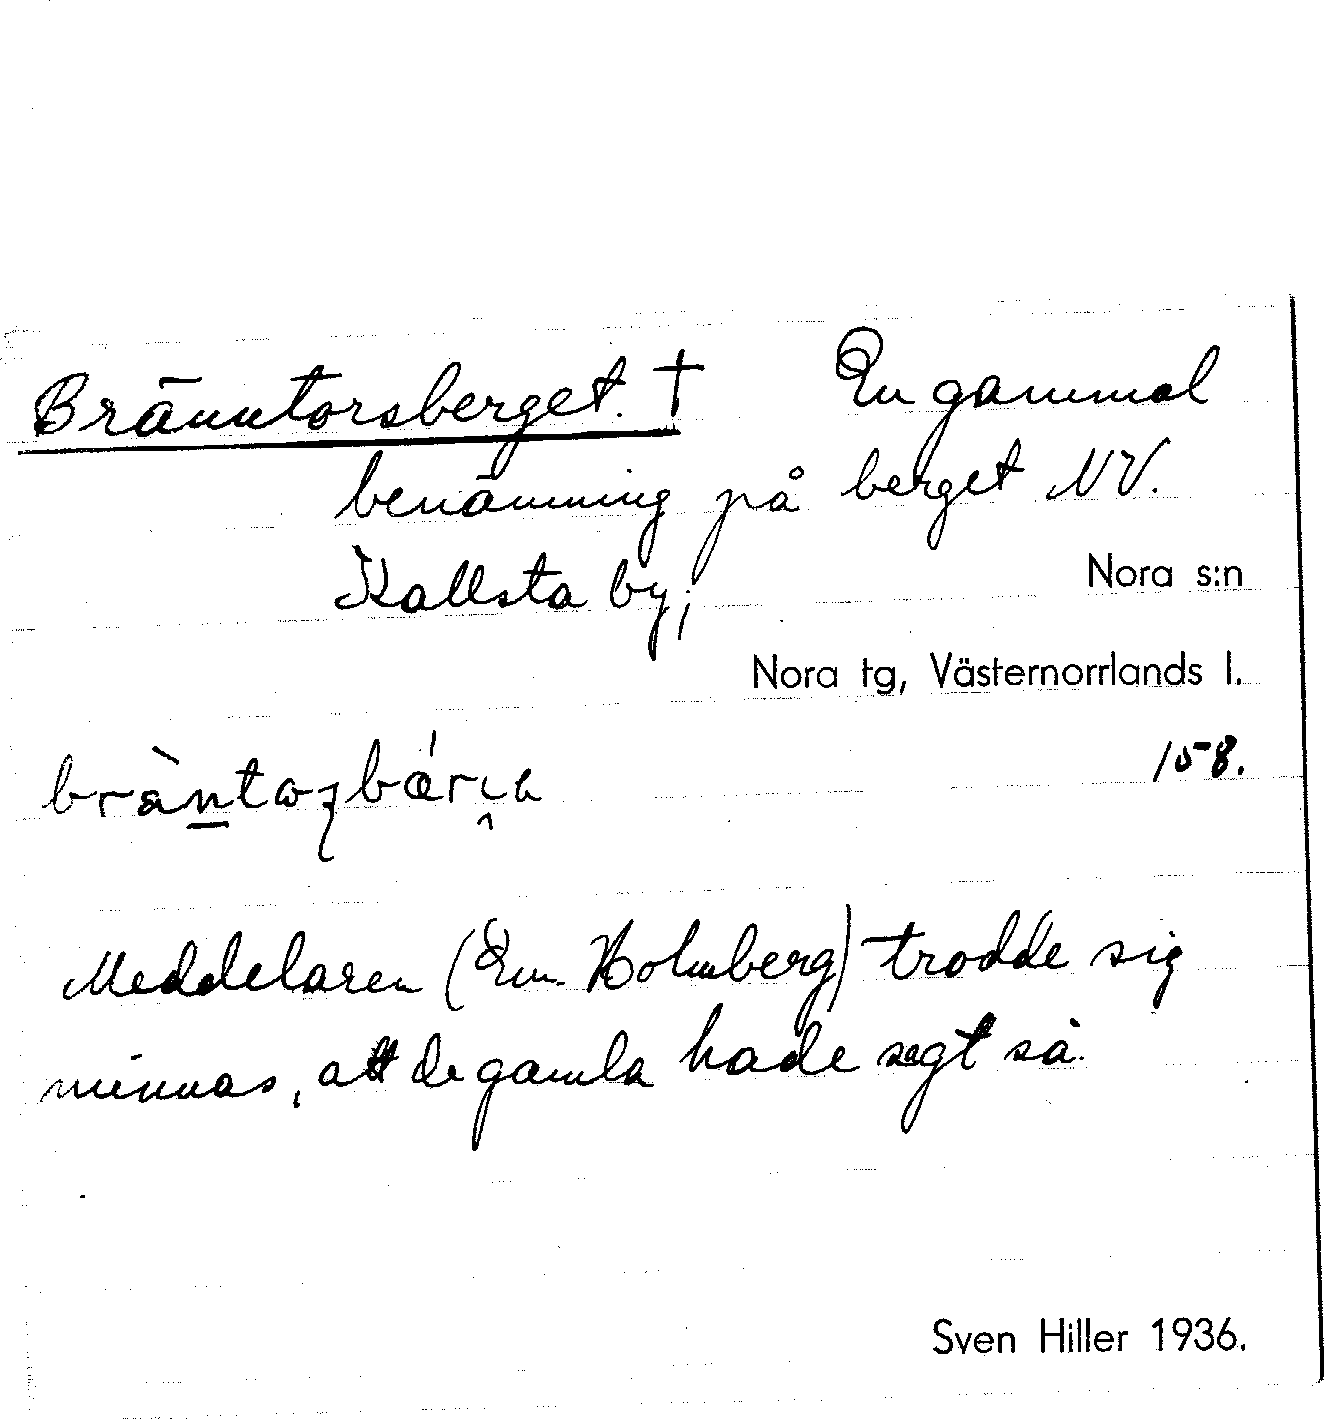 Bränntorsberget. † En gammal
benämning på berget NV.
Kallsta by;
Nora s:n
Nora tg, Västernorrlands l.
158.
Meddelaren (Em. Holmberg) trodde sig
minnas, att de gamla hade sagt så.
Sven Hiller 1936.